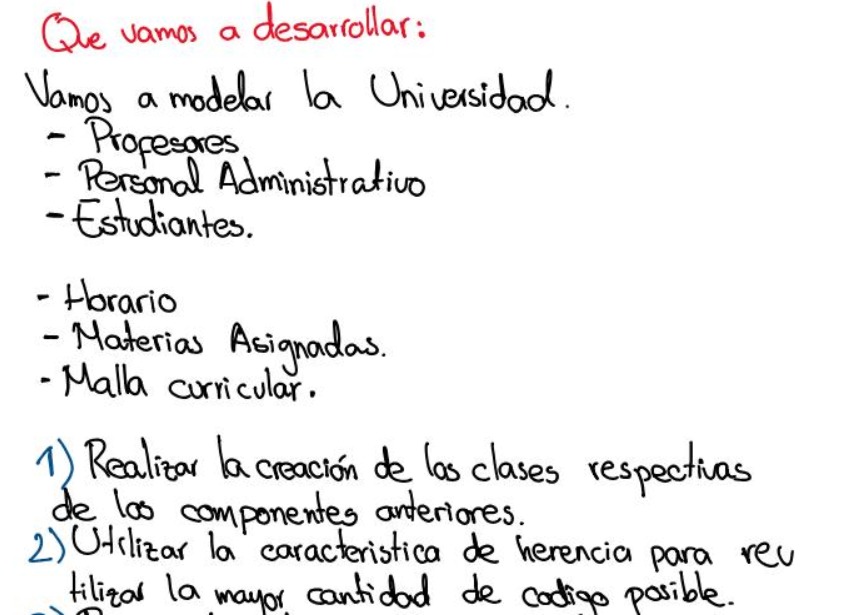 Que vamos a desarrollar:
Vamos a modelar la Universidad.
- Profesores
- Personal Administrativo
- Estudiantes.
- Horario
- Materias Asignadas.
- Malla curricular.
1) Realizar la creación de las clases respectivas
de los componentes anteriores.
2) Utilizar la caracteristica de herencia para reu
tilizar la mayor cantidad de codigo posible.